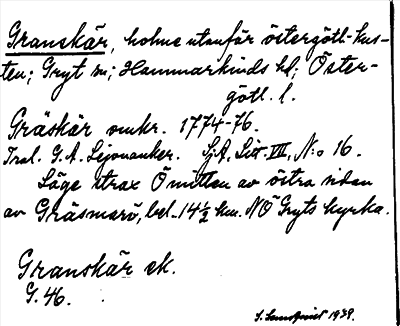 Granskär, holme utanför östergötl.-kus-
ten; Gryt sn; Hammarkinds hd; Öster-
götl. l.
Gräskär omkr. 1774-76.
Tral. G. A. Lejonanker. Sj.A. Litt VIII, N:o 16.
Läge strax Ö mitten av östra sidan
av Gräsmarö, bel. 14½ km. NÖ Gryts kyrka.
Granskär ek.
G. 46.
1939.